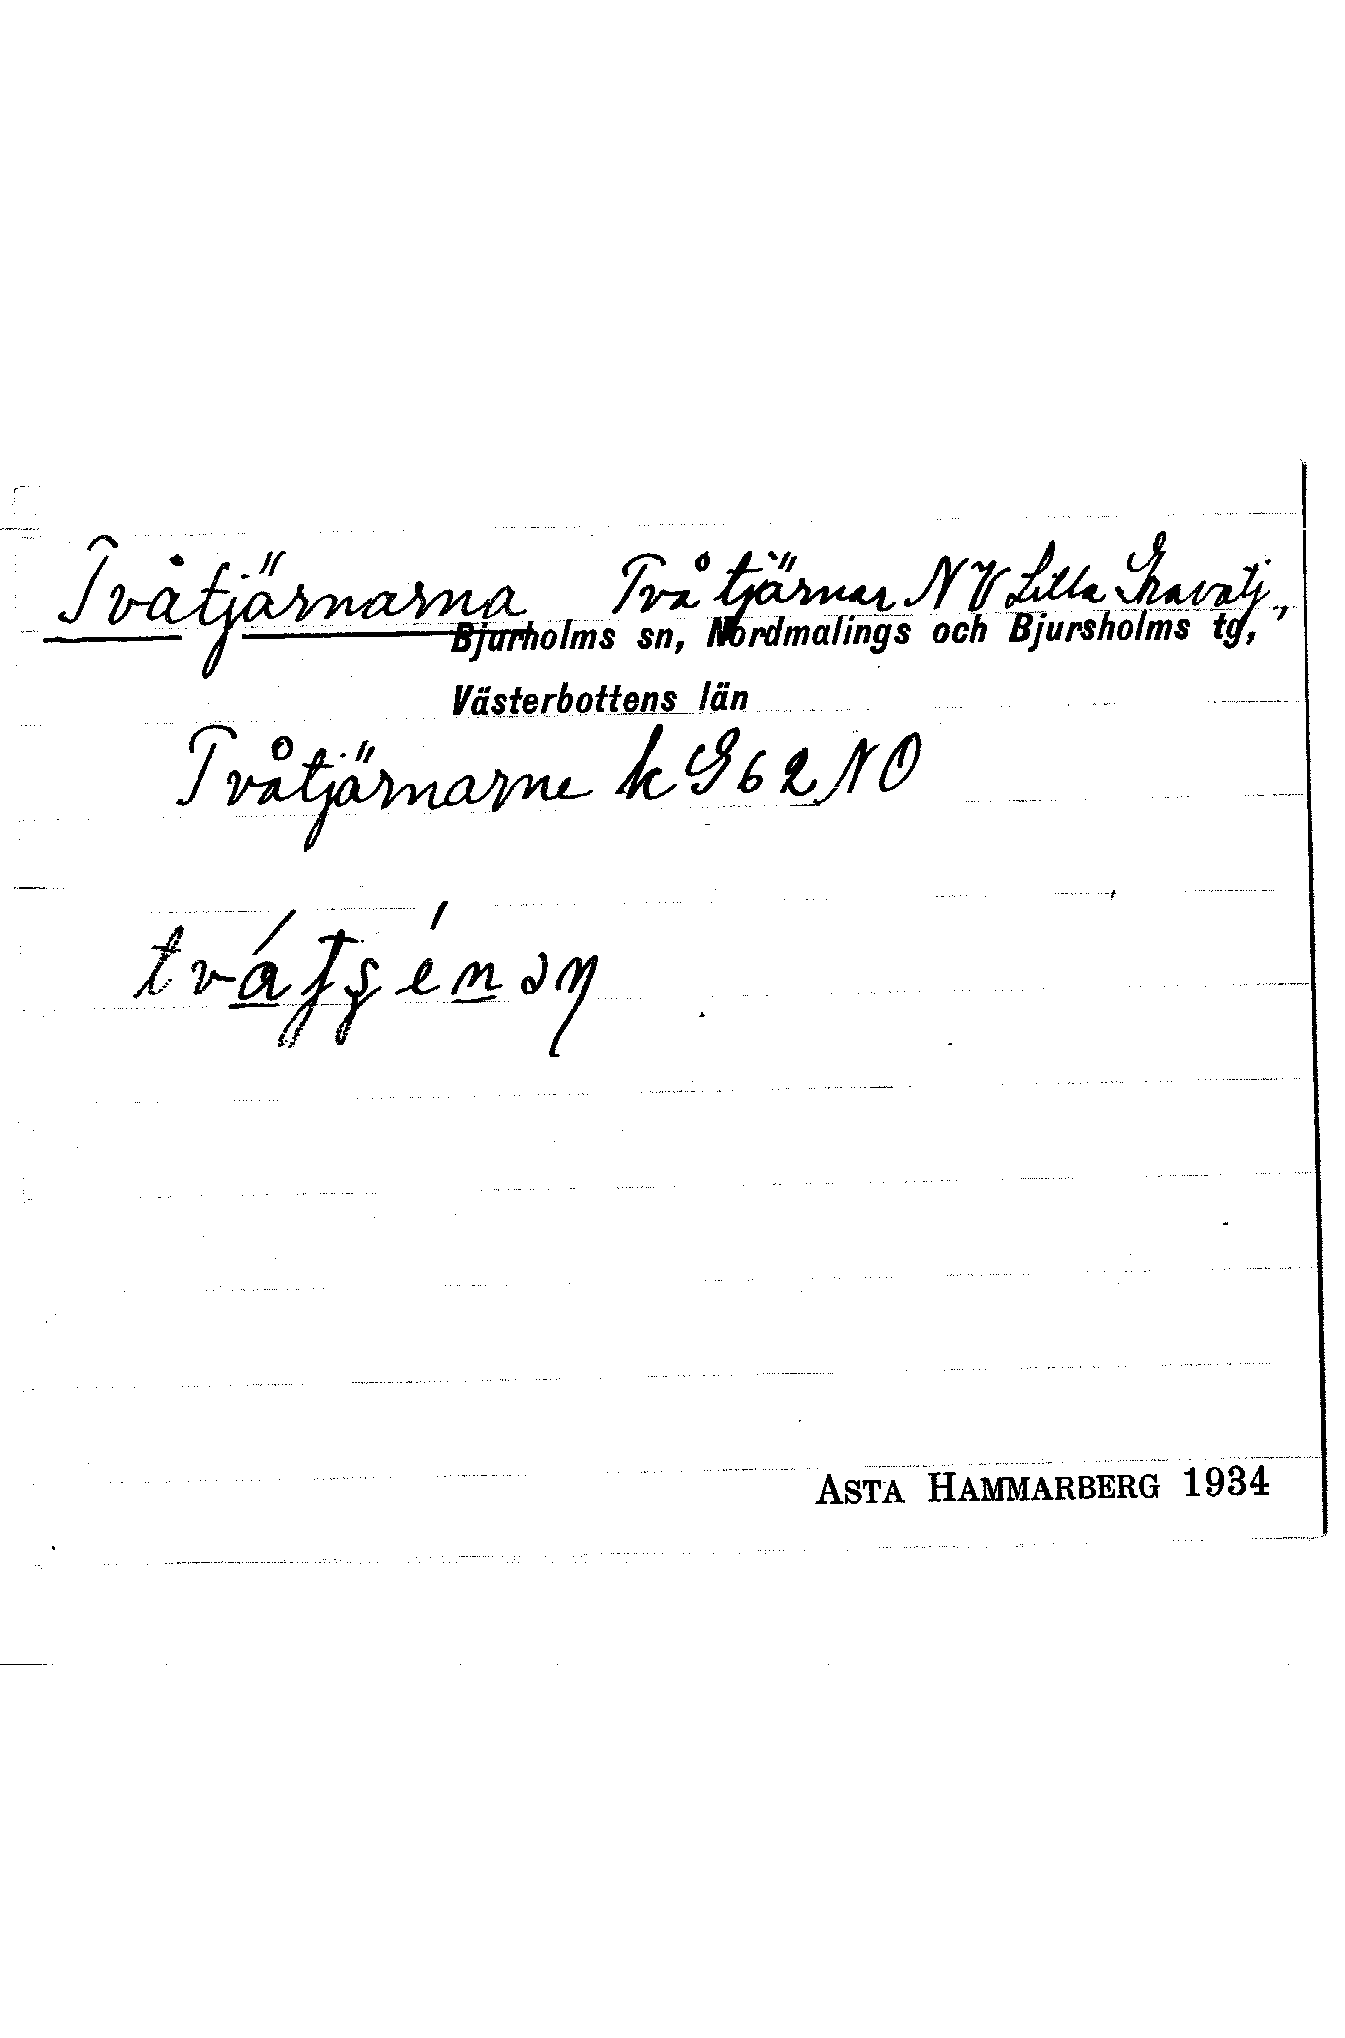 Tvåtjärnarna Två tjärnar NV Lilla
Bjurholms sn, Nordmalings och Bjursholms tg,
Västerbottens län
Tvåtjärnarne k G 62 NO
ASTA HAMMARBERG 1934